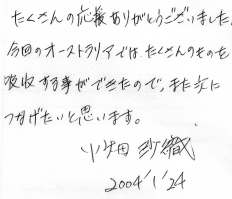 たくさんの応援ありがとうございました。
今回のオーストラリアでは、たくさんのものを
吸収する事ができたので、また次に
つなげたいと思います。
小畑 沙織
2004'1'24